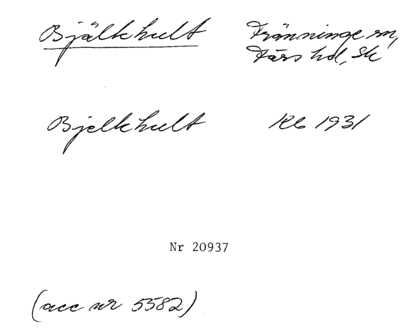 Bjälkhult
Tranninge sn,
Färs hd, Sk
Bjelkhult
Rb 1931
Nr 20937
(acc nr 5582)